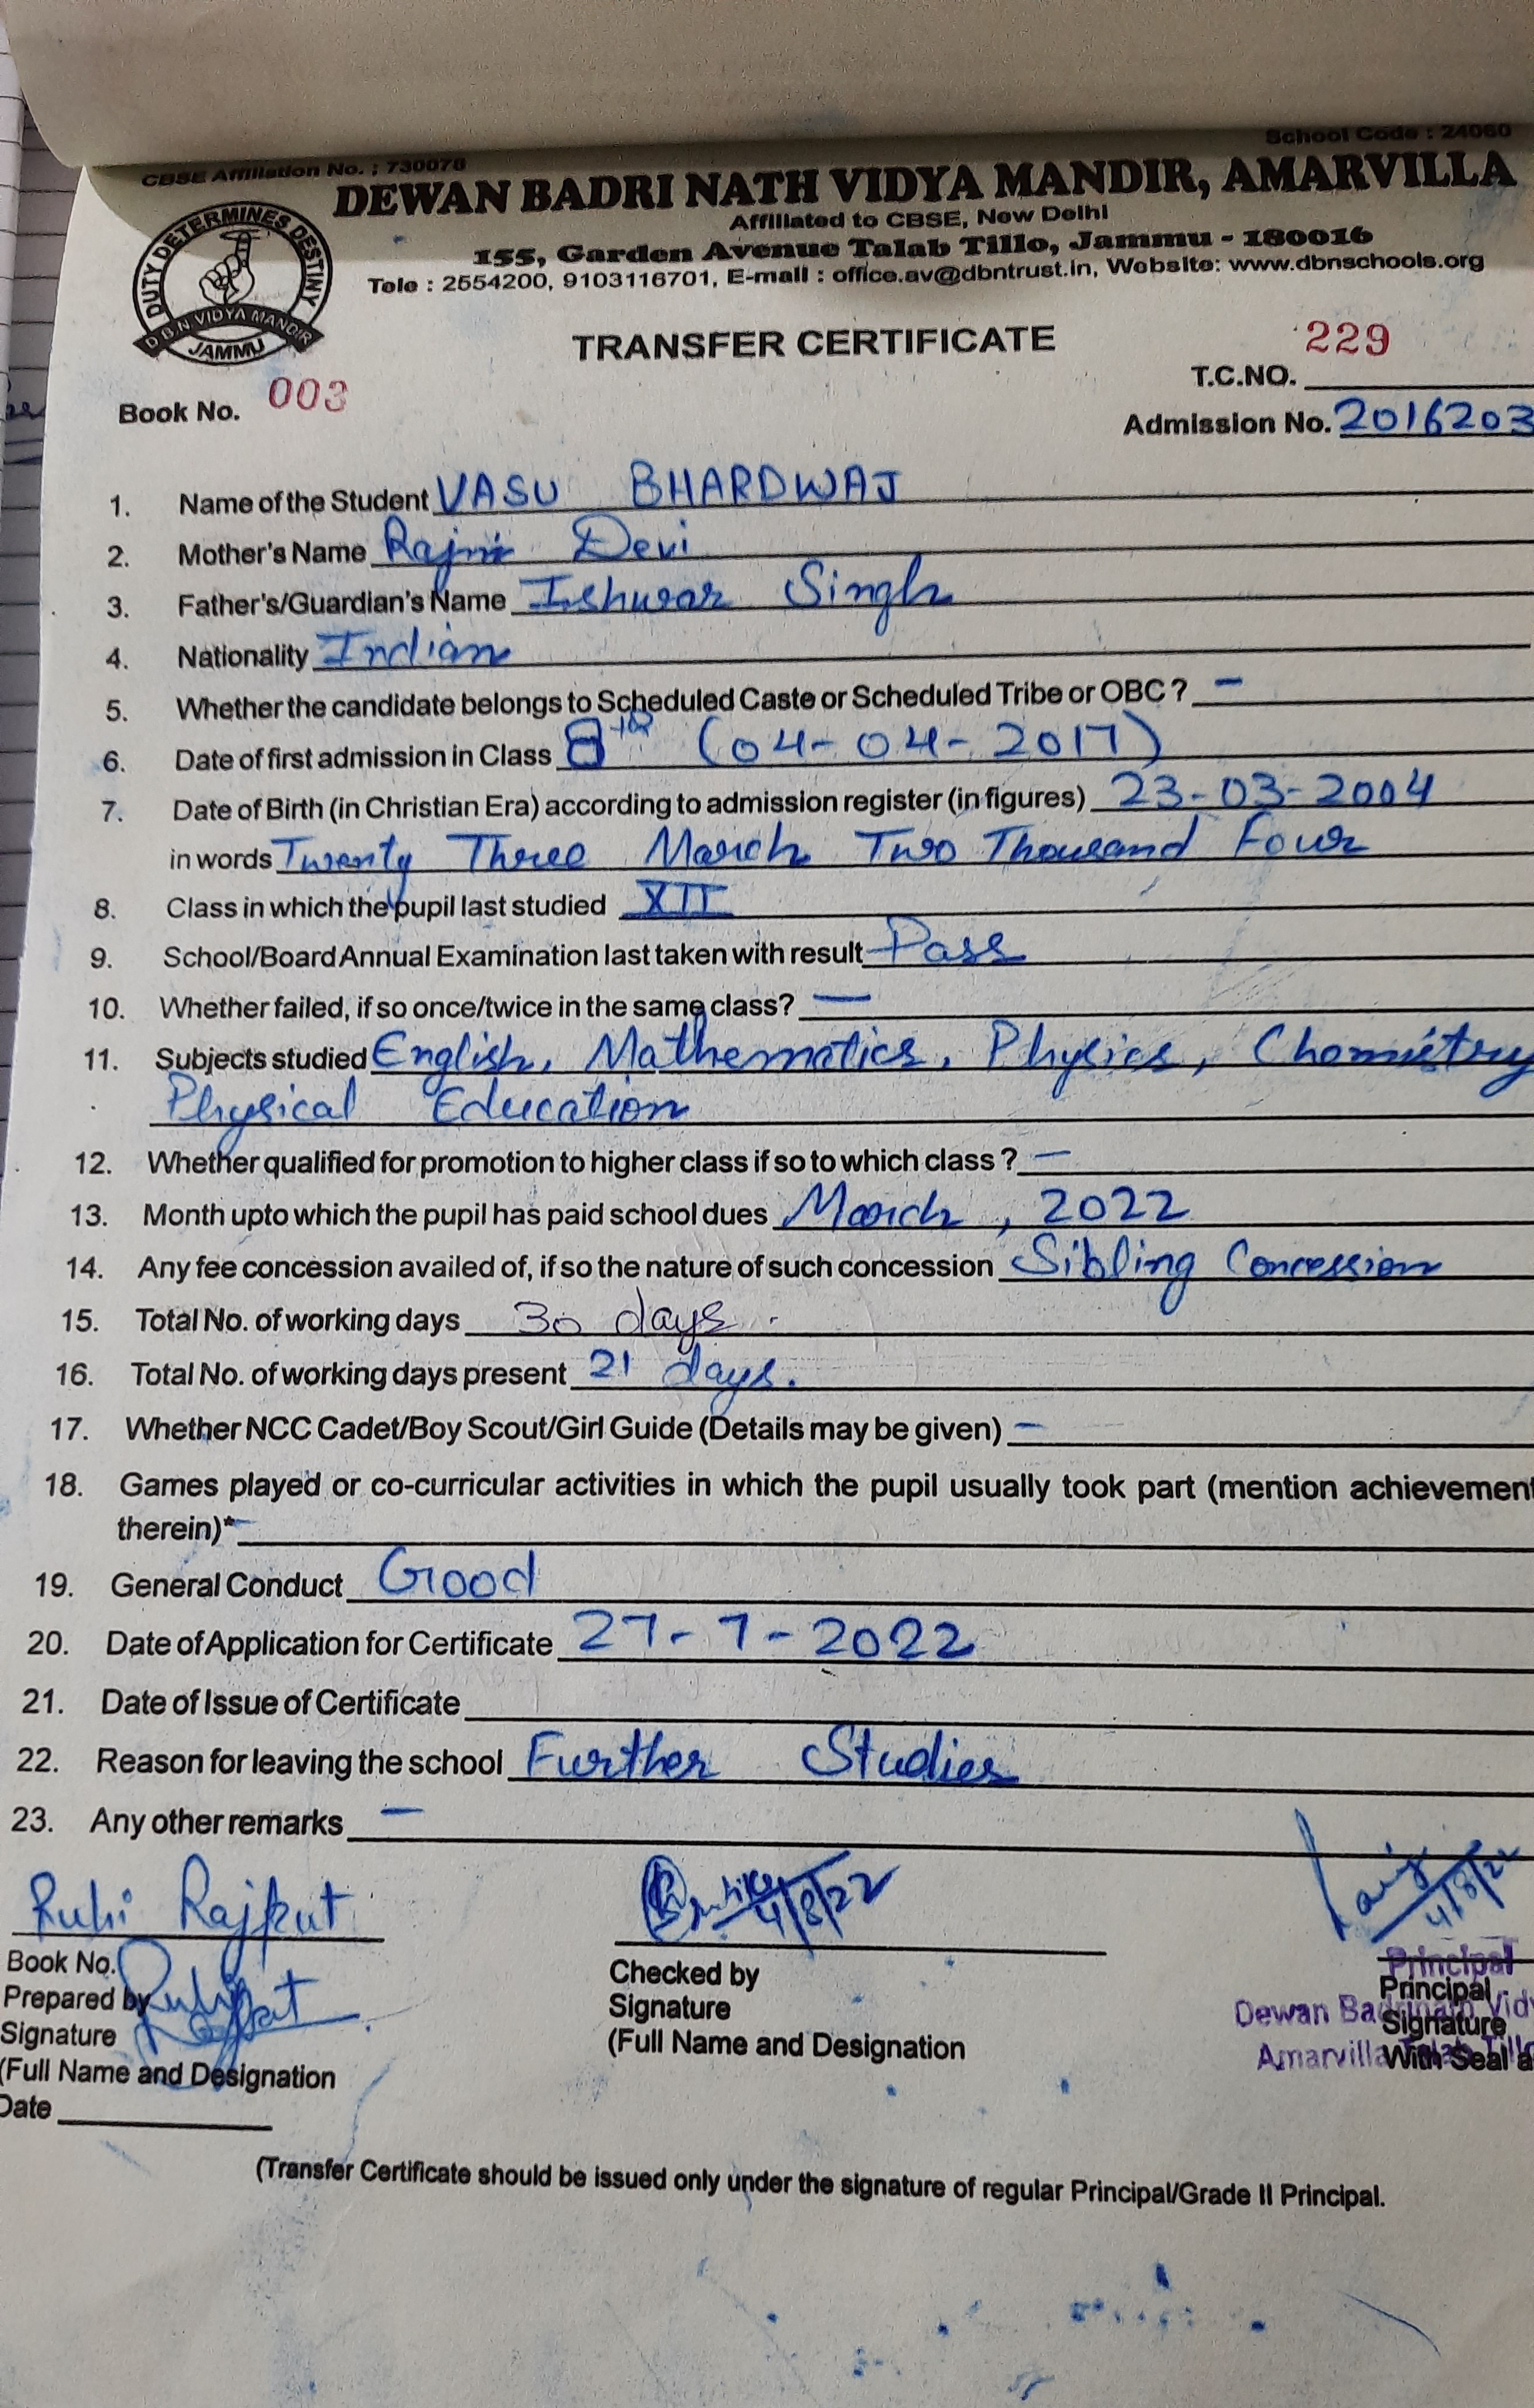 School Code : 24060
CBSE Affiliation No. : 730078
DEWAN BADRI NATH VIDYA MANDIR, AMARVILLA
Affiliated to CBSE, New Delhi
155, Garden Avenue Talab Tillo, Jammu - 180016
Tele : 2554200, 9103116701, E-mail : office.av@dbntrust.in, Website: www.dbnschools.org
DUTY DETERMINES DESTINY
D.B.N VIDYA MANDIR
JAMMU
TRANSFER CERTIFICATE
229
T.C.NO.
Book No. 003
Admission No. 2016203
1. Name of the Student VASU BHARDWAJ
2. Mother's Name Rajni Devi
3. Father's/Guardian's Name Ishwar Singh
4. Nationality Indian
5. Whether the candidate belongs to Scheduled Caste or Scheduled Tribe or OBC ? -
6. Date of first admission in Class 8th (04-04-2017)
7. Date of Birth (in Christian Era) according to admission register (in figures) 23-03-2004
in words Twenty Three March Two Thousand Four
8. Class in which the pupil last studied XII
9. School/Board Annual Examination last taken with result Pass
10. Whether failed, if so once/twice in the same class? -
11. Subjects studied English, Mathematics, Physics, Chemistry
Physical Education
12. Whether qualified for promotion to higher class if so to which class ? -
13. Month upto which the pupil has paid school dues March, 2022
14. Any fee concession availed of, if so the nature of such concession Sibling Concession
15. Total No. of working days 30 days.
16. Total No. of working days present 21 days.
17. Whether NCC Cadet/Boy Scout/Girl Guide (Details may be given) -
18. Games played or co-curricular activities in which the pupil usually took part (mention achievement
therein)* -
19. General Conduct Good
20. Date of Application for Certificate 27-7-2022
21. Date of Issue of Certificate
22. Reason for leaving the school Further Studies
23. Any other remarks -
Ruhi Rajput
4/8/22
4/8/22
Book No.
Prepared by
Signature
(Full Name and Designation
Date
Checked by
Signature
(Full Name and Designation
Principal
Principal
Dewan Badrinath Vid
Signature
Amarvilla Talab Tillo
With Seal a
(Transfer Certificate should be issued only under the signature of regular Principal/Grade II Principal.